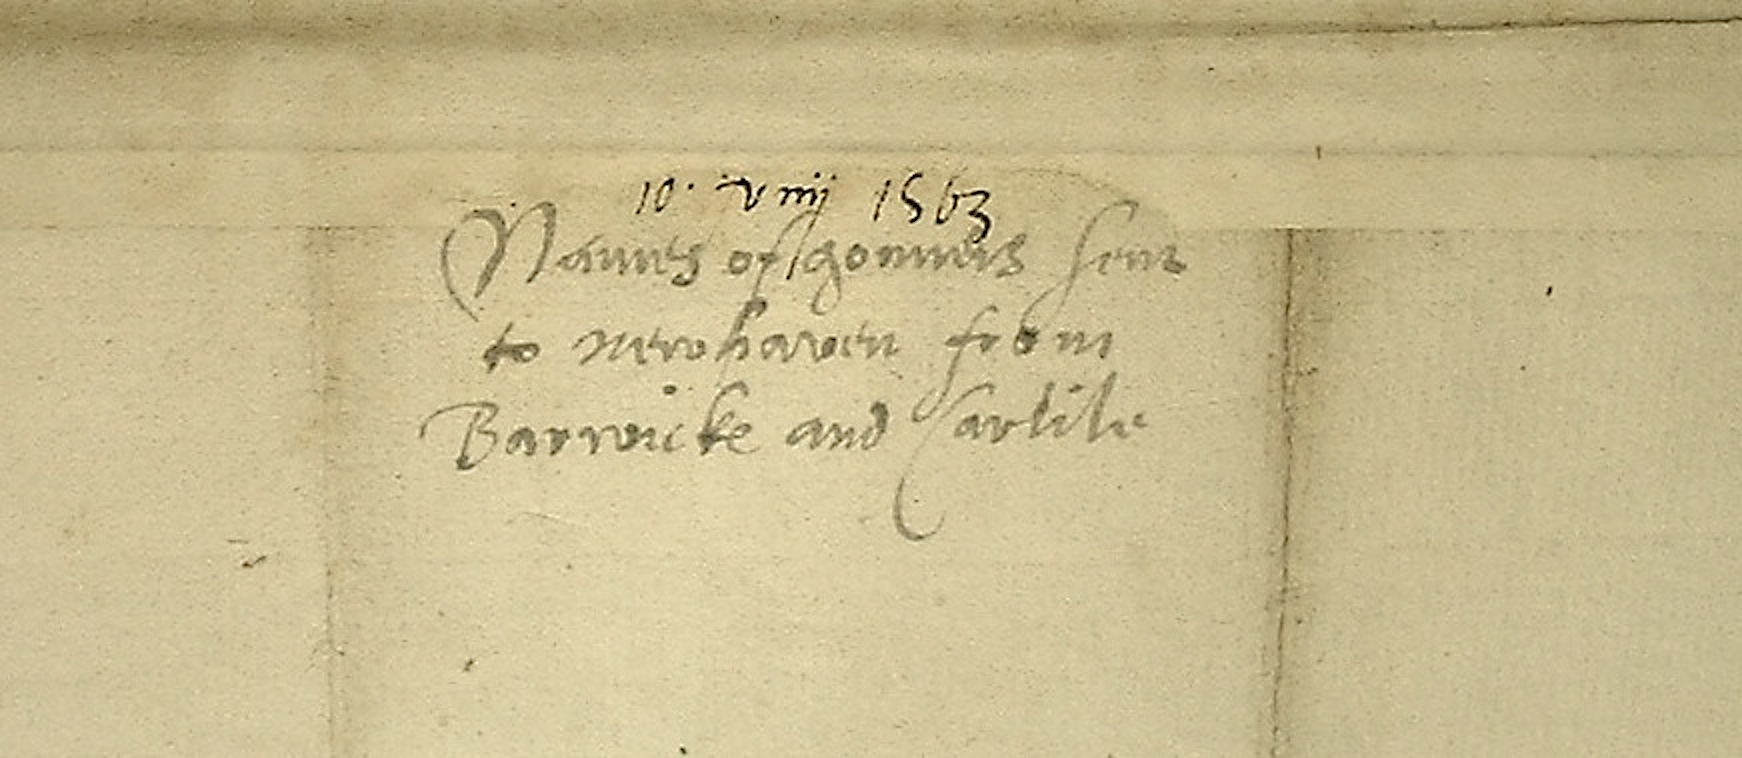 10. Junij 1563
Names of gonners sent
to newhaven from
Barwicke and Carlile